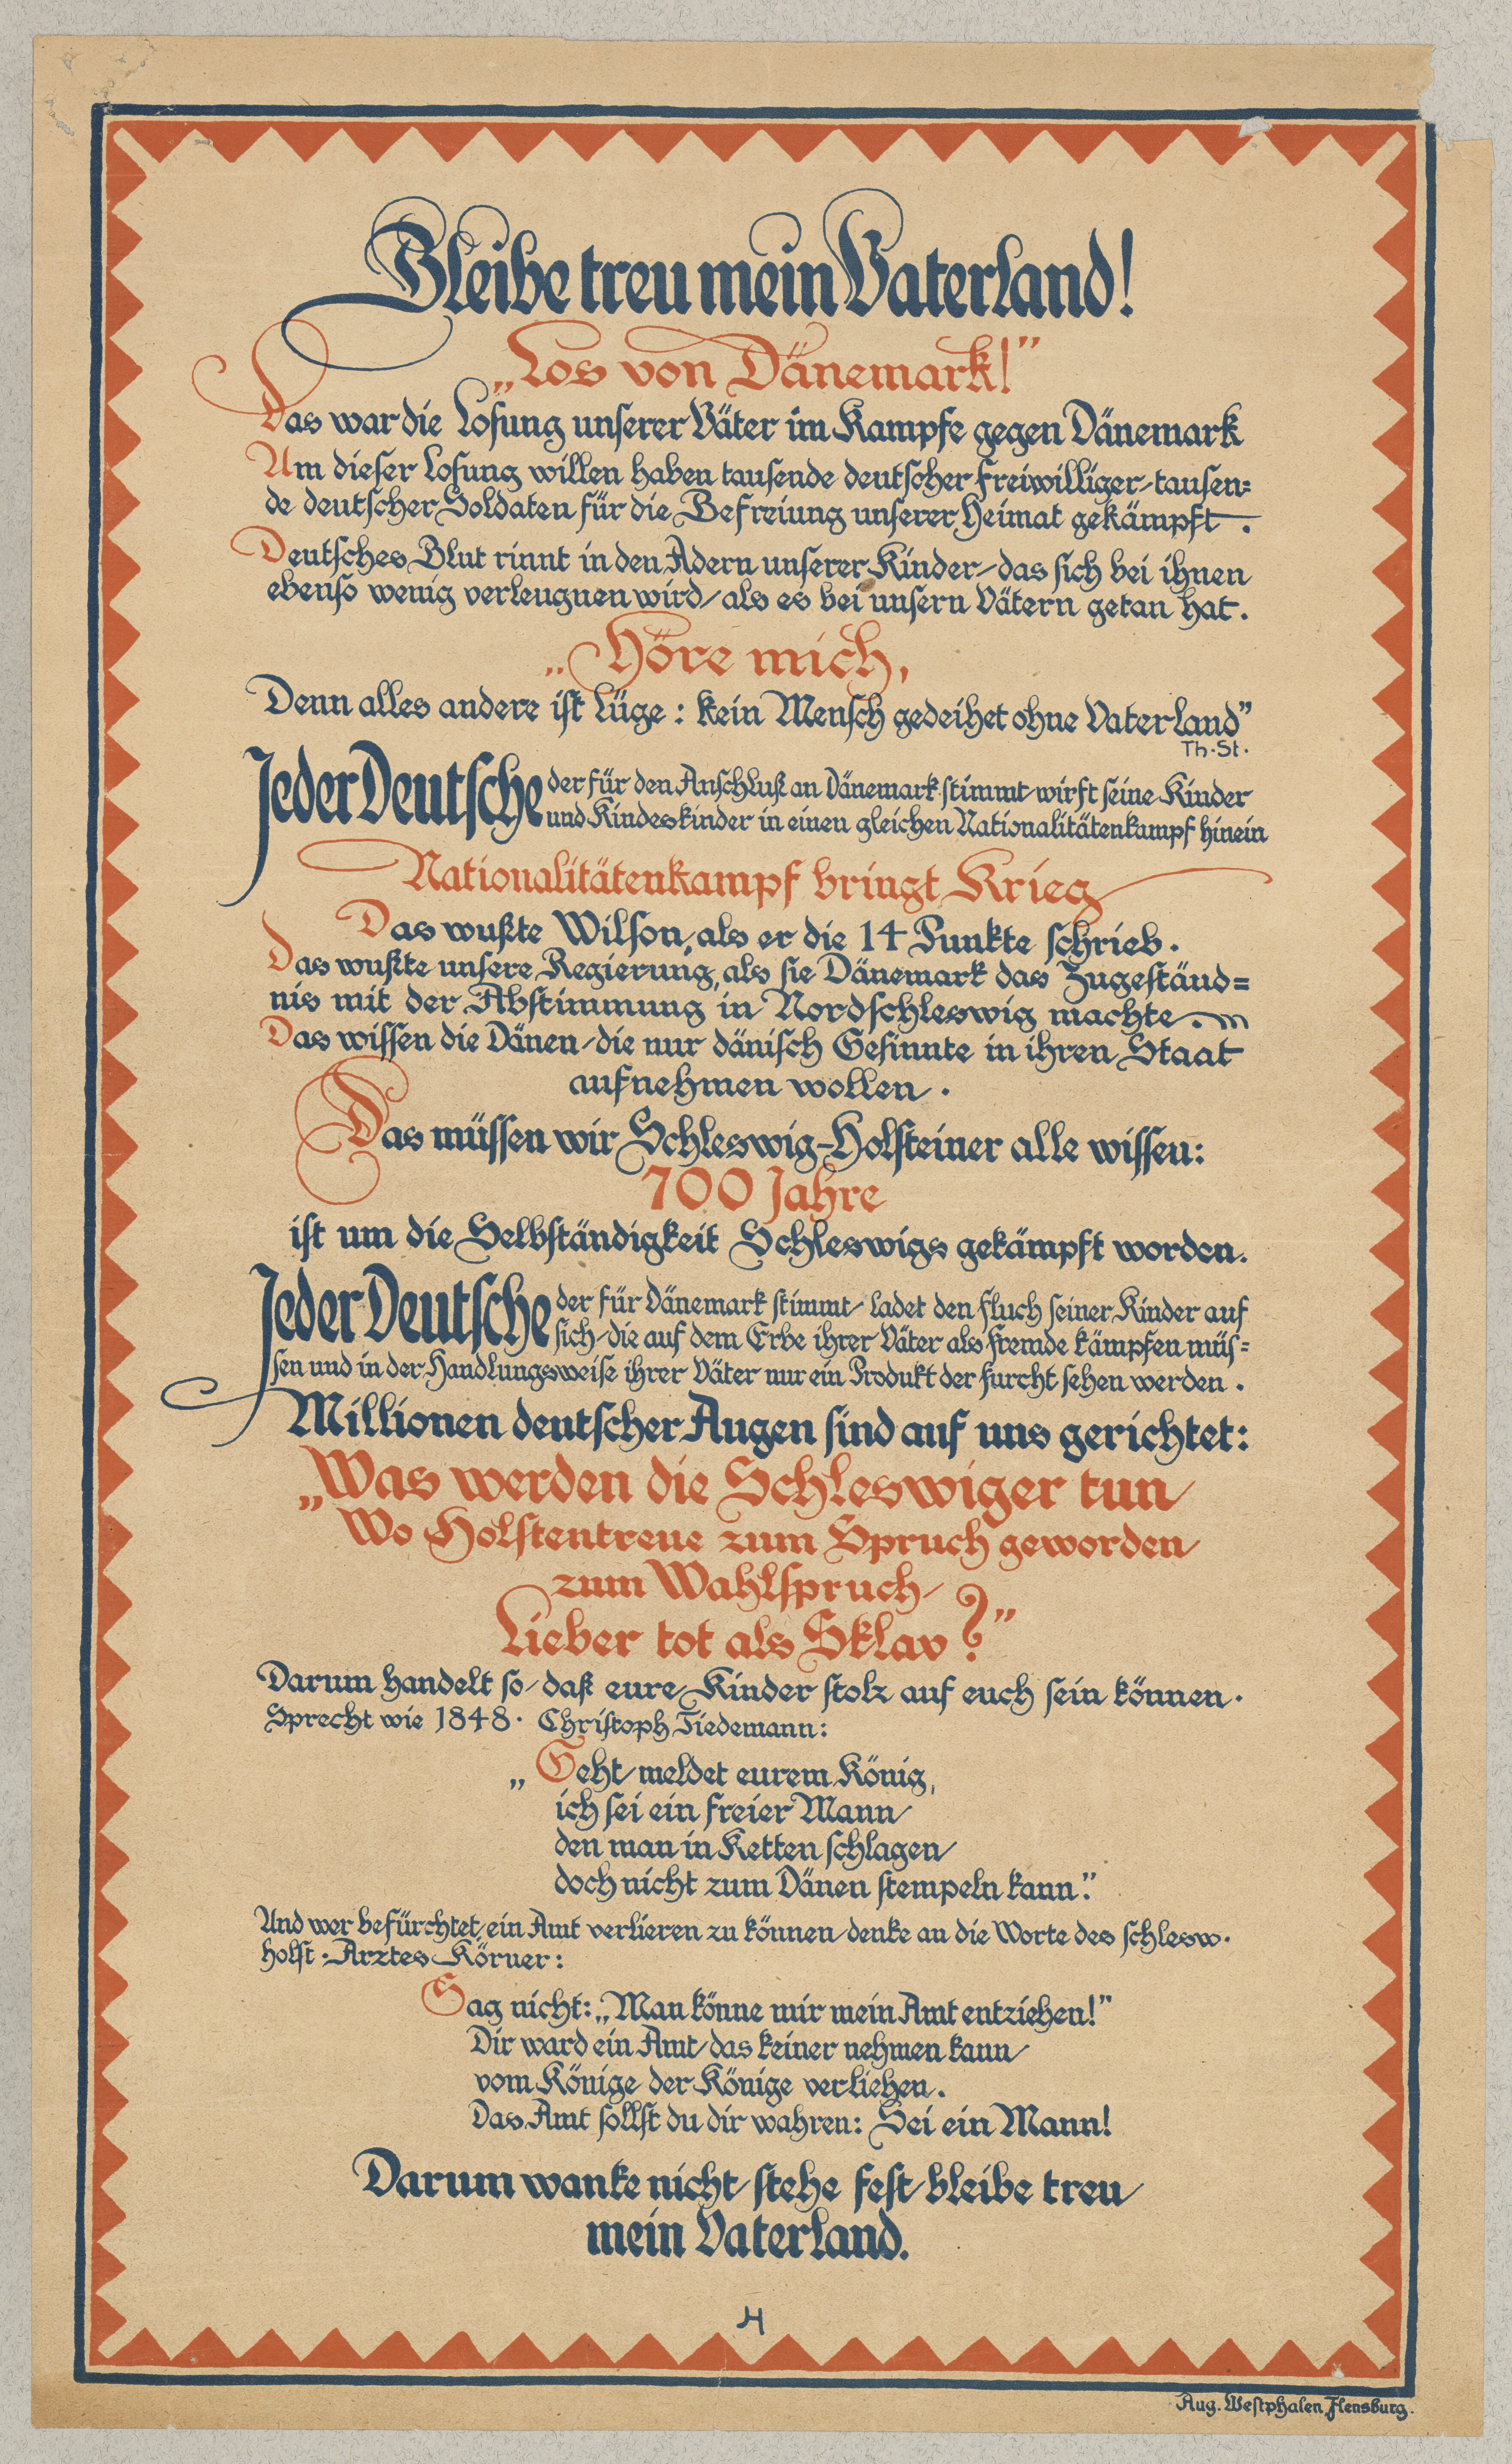 Bleibe treu mein Vaterland!
„Los von Dänemark!”
Das war die Losung unserer Väter im Kampfe gegen Dänemark
Um dieser Losung willen haben tausende deutscher Freiwilliger, tausen=
de deutscher Soldaten für die Befreiung unserer Heimat gekämpft.
Deutsches Blut rinnt in den Adern unserer Kinder, das sich bei ihnen
ebenso wenig verleugnen wird, als es bei unsern Vätern getan hat.
„Höre mich,
Denn alles andere ist Lüge: kein Mensch gedeihet ohne Vaterland”
Th. St.
Jeder Deutsche der für den Anschluß an Dänemark stimmt, wirft seine Kinder
und Kindeskinder in einen gleichen Nationalitätenkampf hinein
Nationalitätenkampf bringt Krieg
Das wußte Wilson, als er die 14 Punkte schrieb.
Das wußte unsere Regierung, als sie Dänemark das Zugeständ=
nis mit der Abstimmung in Nordschleswig machte.
Das wissen die Dänen, die nur dänisch Gesinnte in ihren Staat
aufnehmen wollen.
Das müssen wir Schleswig-Holsteiner alle wissen:
700 Jahre
ist um die Selbständigkeit Schleswigs gekämpft worden.
Jeder Deutsche der für Dänemark stimmt, ladet den Fluch seiner Kinder auf
sich, die auf dem Erbe ihrer Väter als Fremde kämpfen müs=
sen und in der Handlungsweise ihrer Väter nur ein Produkt der Furcht sehen werden.
Millionen deutscher Augen sind auf uns gerichtet:
„Was werden die Schleswiger tun,
Wo Holstentreue zum Spruch geworden,
zum Wahlspruch,
Lieber tot als Sklav?”
Darum handelt so, daß eure Kinder stolz auf euch sein können.
Sprecht wie 1848. Christoph Tiedemann:
„Geht, meldet eurem König,
ich sei ein freier Mann,
den man in Ketten schlagen,
doch nicht zum Dänen stempeln kann.”
Und wer befürchtet, ein Amt verlieren zu können, denke an die Worte des schlesw.
holst. Arztes Körner:
Sag nicht: „Man könne mir mein Amt entziehen!”
Dir ward ein Amt, das keiner nehmen kann,
vom Könige der Könige verliehen.
Das Amt sollst du dir wahren: Sei ein Mann!
Darum wanke nicht, stehe fest, bleibe treu,
mein Vaterland.
H
Aug. Westphalen, Flensburg.